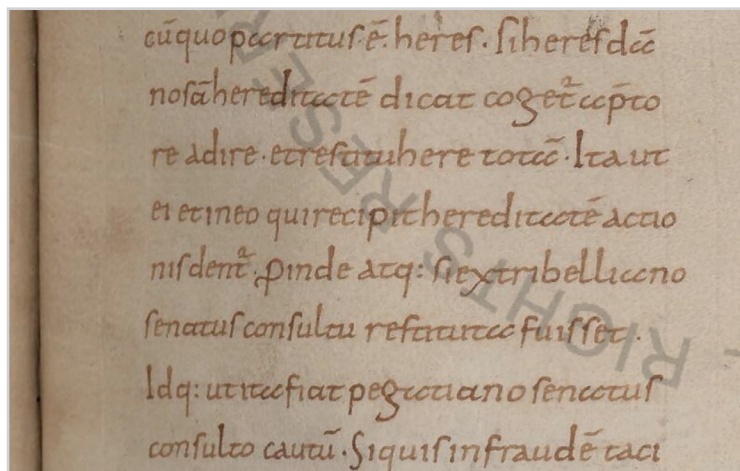 cū quo partitus. ē. heres. si heres dā
nosā hereditatē dicat coget̄ a p̄to
re adire. et restituhere totā. Ita ut
ei et in eo qui recipit hereditatē actio
nis dent̄. ꝑinde atq: si extribelliano
senatus consultu restituta fuisset.
Idq: ut ita fiat pegatiano senatus
consulto cautū. Si quis in fraudē taci
RIGHTS RESER